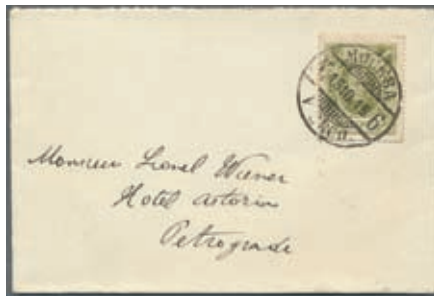 МОСКВА
6
Monsieur Lionel Wiener
Hotel Astoria
Petrograde